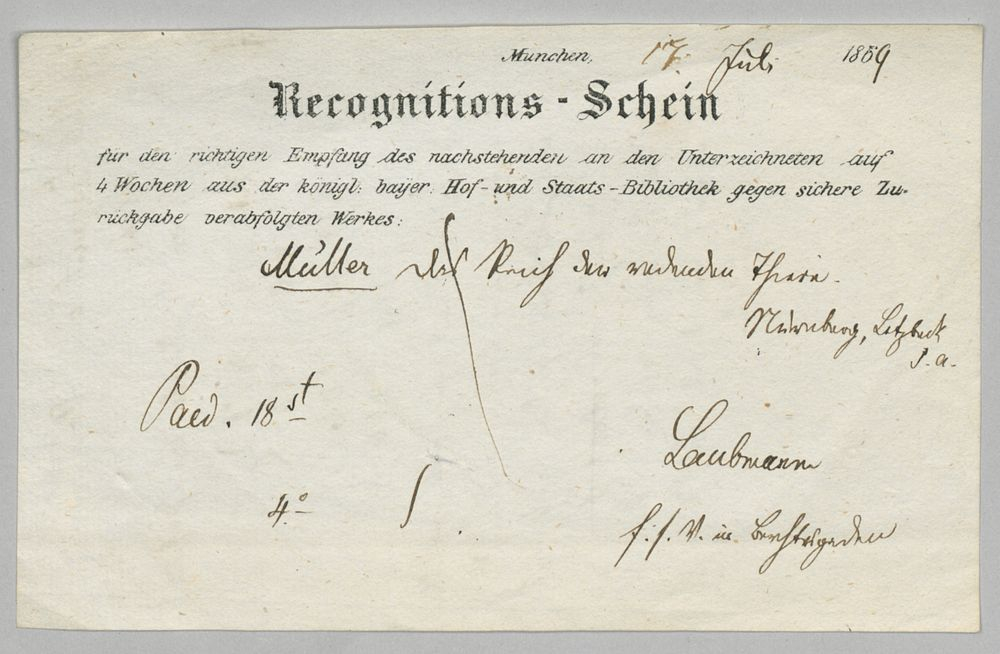 München, 17 Juli 1869
Recognitions-Schein
für den richtigen Empfang des nachstehenden an den Unterzeichneten auf
4 Wochen aus der königl: bayer. Hof- und Staats-Bibliothek gegen sichere Zu-
rückgabe verabfolgten Werkes:
Müller Das Reich der redenden Thiere.
Nürnberg, Lotzbeck
s. a.
Paed. 18 st
4o
Laubmann
f. s. V. in Berchtsgaden